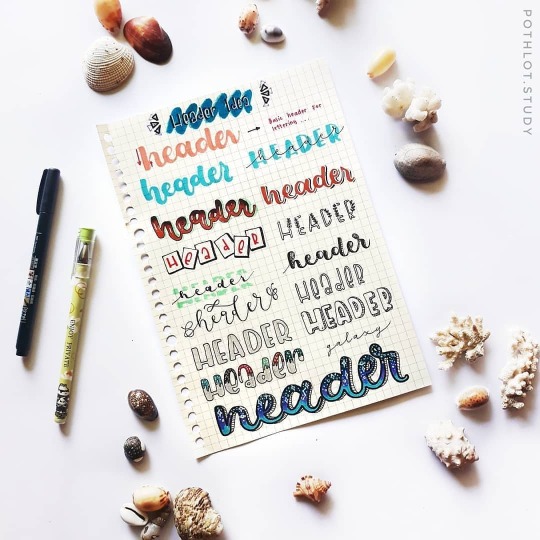 Header Idea
header
Basic header for
lettering ...
header
HEADER
header
header
HEADER
HEADER
header
header
HEADER
header
Header
HEADER
HEADER
Header
galaxy
header
POTHLOT.STUDY